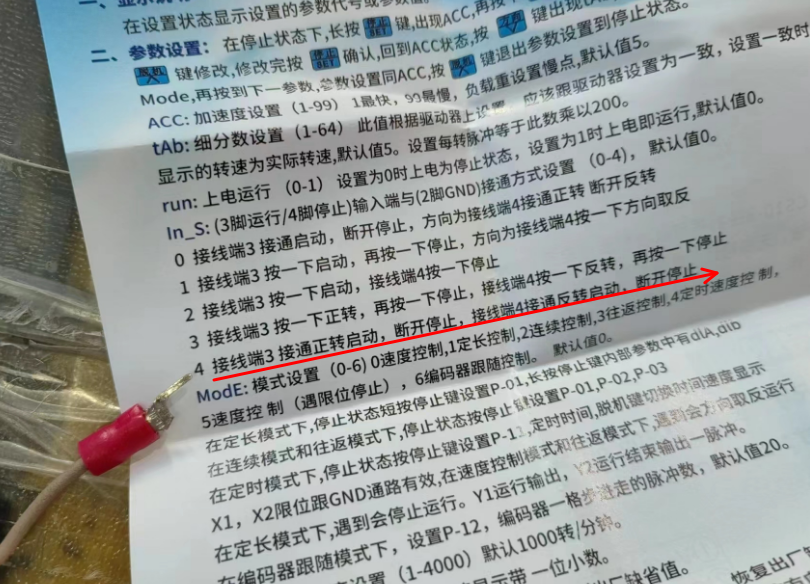 一、显示
在设置状态显示设置的参数代号或参数值。
二、参数设置：在停止状态下,长按 停止 SET 键,出现ACC,再按
脱机 键修改,修改完按 停止 SET 确认,回到ACC状态,按 键出现
Mode,再按到下一参数,参数设置同ACC,按 脱机 键退出参数设置到停止状态。
ACC: 加速度设置（1-99） 1最快，99最慢，负载重设置慢点,默认值5。
tAb: 细分数设置（1-64） 此值根据驱动器上设置，应该跟驱动器设置为一致，设置一致时
显示的转速为实际转速,默认值5。设置每转脉冲等于此数乘以200。
run: 上电运行 （0-1） 设置为0时上电为停止状态，设置为1时上电即运行,默认值0。
In_S: (3脚运行/4脚停止)输入端与(2脚GND)接通方式设置 （0-4)， 默认值0。
0 接线端3 接通启动，断开停止，方向为接线端4接通正转 断开反转
1 接线端3 按一下启动，再按一下停止，方向为接线端4按一下方向取反
2 接线端3 按一下启动，接线端4按一下停止
3 接线端3 按一下正转，再按一下停止，接线端4按一下反转，再按一下停止
4 接线端3 接通正转启动，断开停止，接线端4接通反转启动，断开停止
ModE: 模式设置（0-6) 0速度控制,1定长控制,2连续控制,3往返控制,4定时速度控 制，
5速度控 制（遇限位停止），6编码器跟随控制。 默认值0。
在定长模式下,停止状态短按停止键设置P-01,长按停止键内部参数中有
在连续模式和往返模式下,停止状态按停止键设置P-01,P-02,P-03
在定时模式下,停止状态按停止键设置P-1,定时时间,脱机键切换时间速度显示
X1，X2限位跟GND通路有效,在速度控制模式和往返模式下,遇到会方向取反运行
在定长模式下,遇到会停止运行。Y1运行输出，Y2运行结束输出一脉冲。
在编码器跟随模式下，设置P-12，编码器一格步进走的脉冲数，默认值20。
设置 （1-4000）默认1000转/分钟。
显示带 一位小数。
缺省值。
恢复出厂